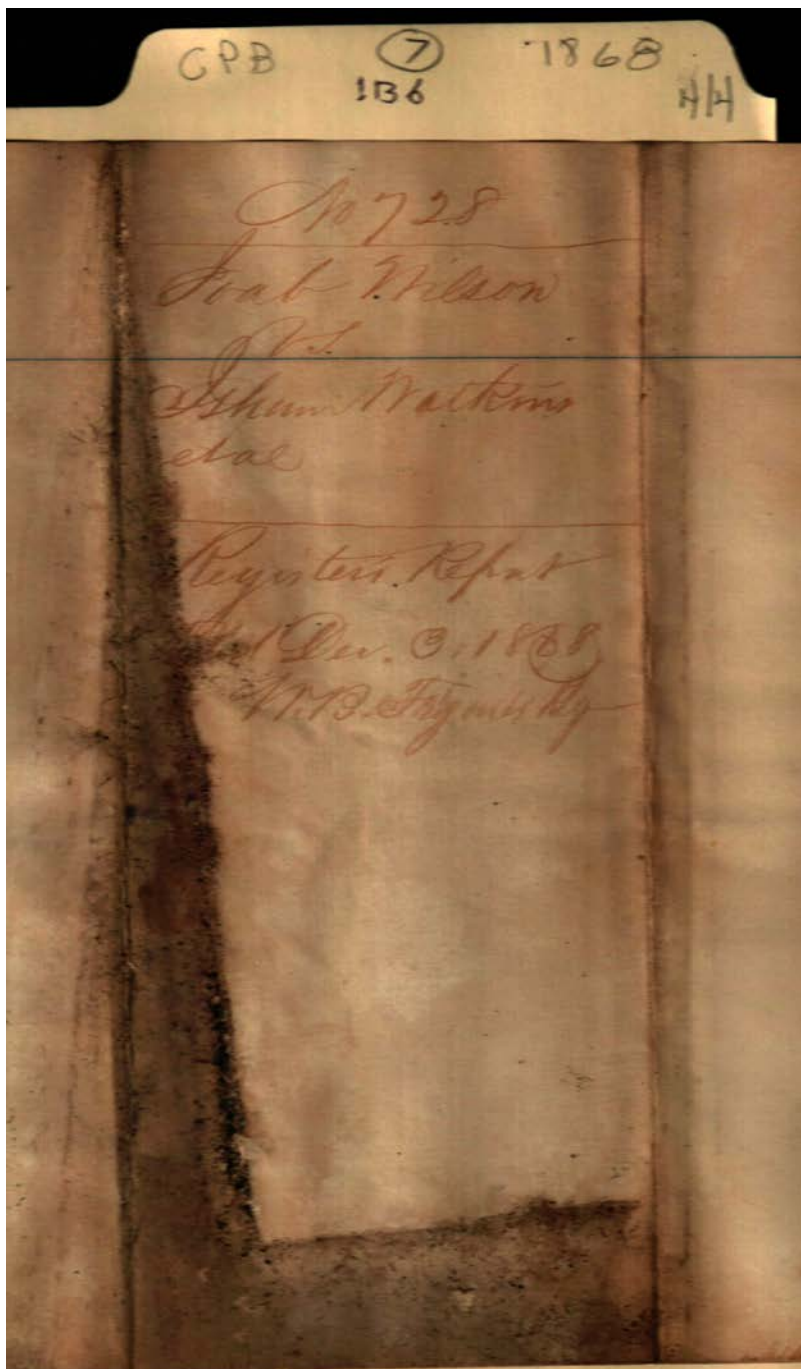 CPB 7 1868
1B6 H/H
No 728
Joab Wilson
vs.
Isham Watkins
et al
Registers Report
Dec. 3, 1868
W.B.